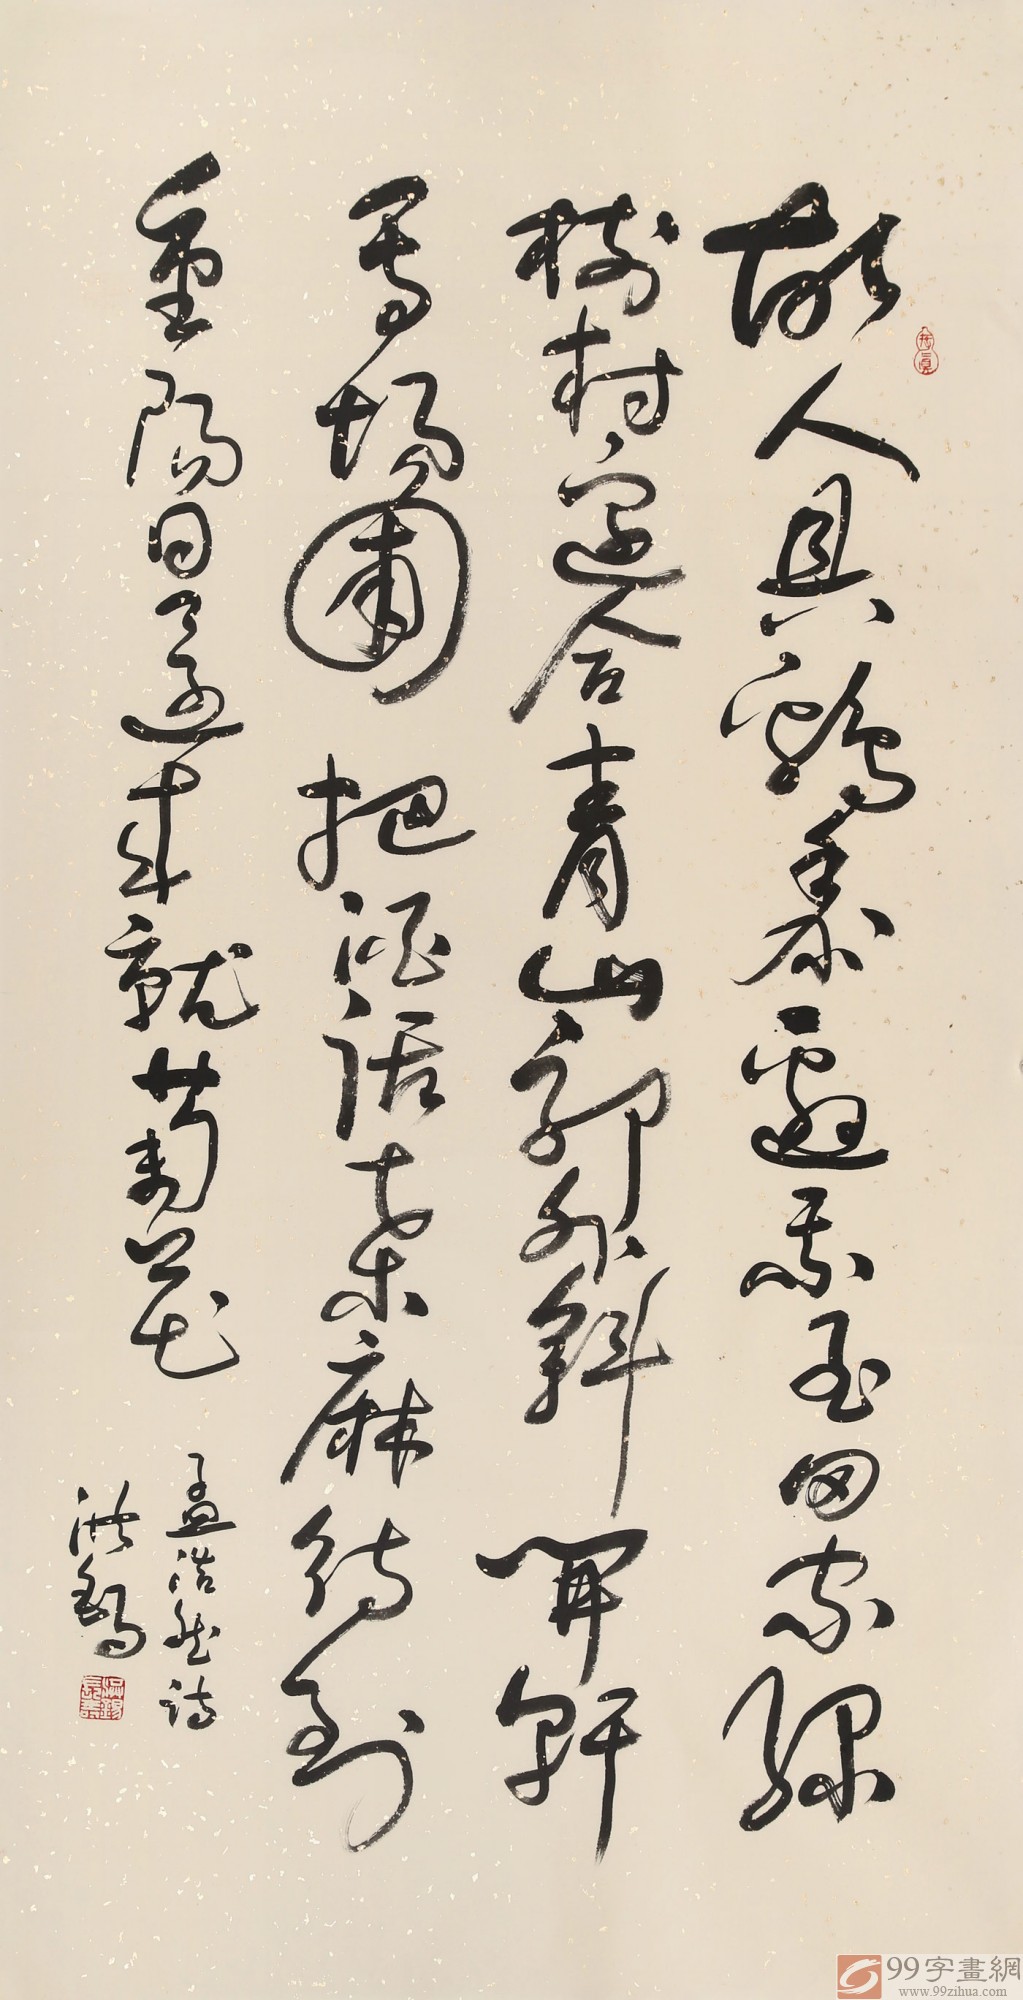 故人具鸡黍邀我至田家绿
树村边合青山郭外斜开轩
面场圃把酒话桑麻待到
重阳日还来就菊花
孟浩然诗
99字畫網
www.99zihua.com